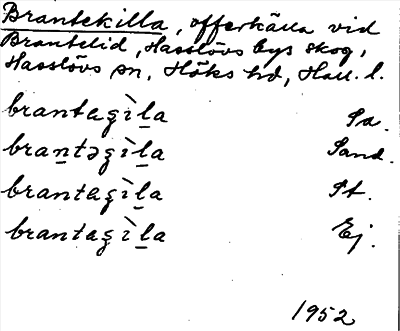 Brantekilla, offerkälla vid
Brantelid, Hasslövs bys skog,
Hasslövs sn, Höks hd, Hall. l.
brantagìḻa Sa.
braṉtəgìḻa Sand.
brantagìḻa St.
brantagìḻa Ej.
1952